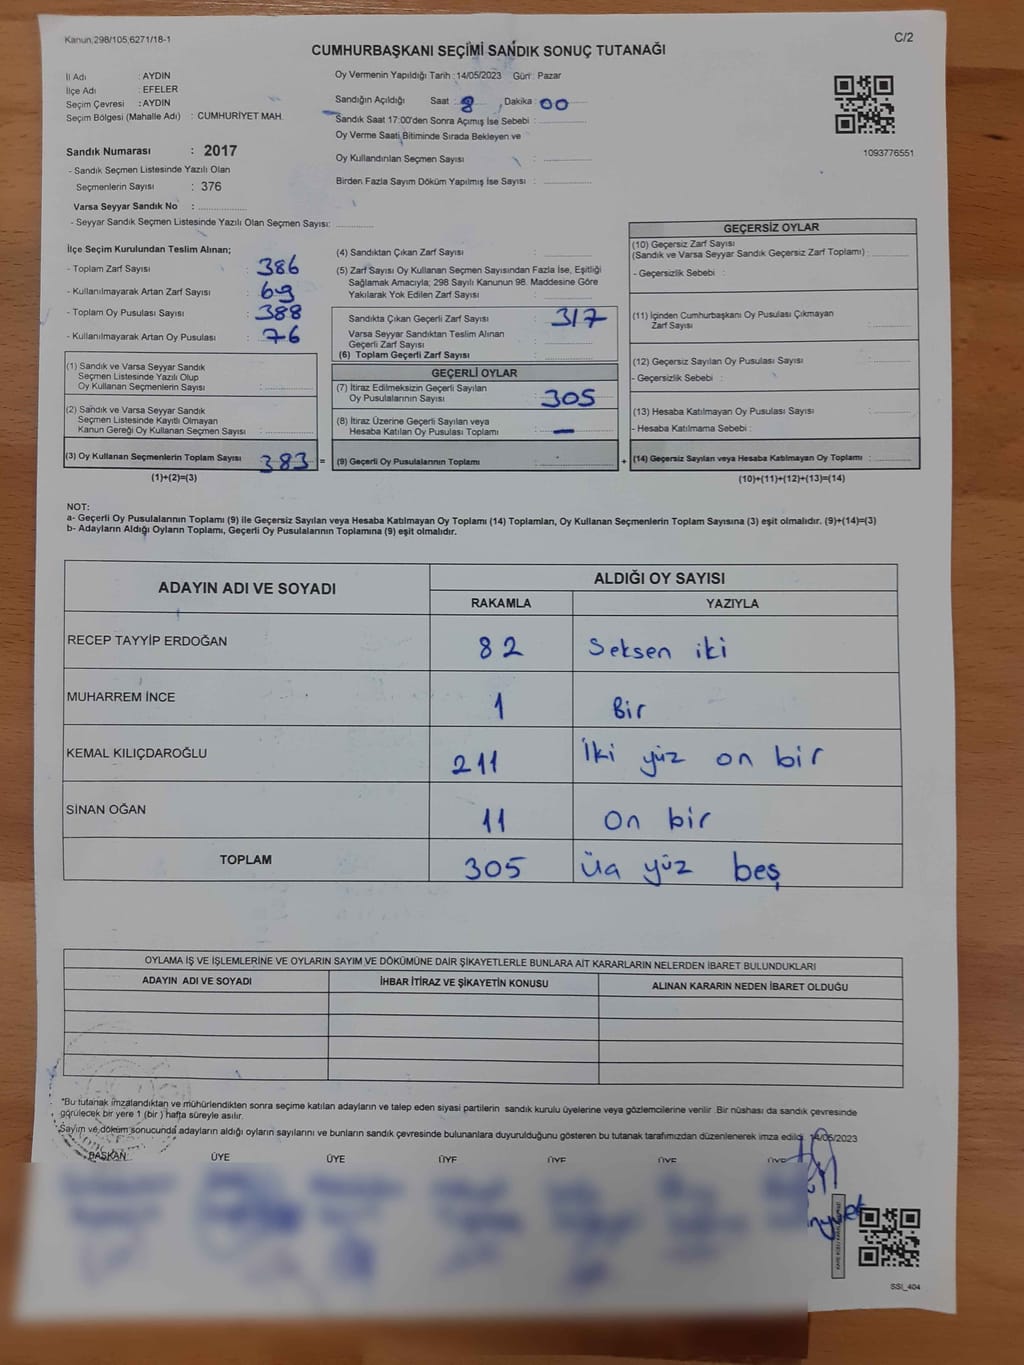 Kanun,298/105,6271/18-1
C/2
CUMHURBAŞKANI SEÇİMİ SANDIK SONUÇ TUTANAĞI
İl Adı : AYDIN
İlçe Adı : EFELER
Seçim Çevresi : AYDIN
Seçim Bölgesi (Mahalle Adı) : CUMHURİYET MAH.
Sandık Numarası : 2017
- Sandık Seçmen Listesinde Yazılı Olan
Seçmenlerin Sayısı : 376
Varsa Seyyar Sandık No : ................
- Seyyar Sandık Seçmen Listesinde Yazılı Olan Seçmen Sayısı: ............
Oy Vermenin Yapıldığı Tarih : 14/05/2023 Gün : Pazar
Sandığın Açıldığı Saat : 8 Dakika : 00
Sandık Saat 17:00'den Sonra Açımış İse Sebebi : ................
Oy Verme Saati Bitiminde Sırada Bekleyen ve
Oy Kullandırılan Seçmen Sayısı : ................
Birden Fazla Sayım Döküm Yapılmış İse Sayısı : ................
1093776551
İlçe Seçim Kurulundan Teslim Alınan;
- Toplam Zarf Sayısı : 386
- Kullanılmayarak Artan Zarf Sayısı : 69
- Toplam Oy Pusulası Sayısı : 388
- Kullanılmayarak Artan Oy Pusulası : 76
(1) Sandık ve Varsa Seyyar Sandık
Seçmen Listesinde Yazılı Olup
Oy Kullanan Seçmenlerin Sayısı : ................
(2) Sandık ve Varsa Seyyar Sandık
Seçmen Listesinde Kayıtlı Olmayan
Kanun Gereği Oy Kullanan Seçmen Sayısı : ................
(3) Oy Kullanan Seçmenlerin Toplam Sayısı 383 =
(1)+(2)=(3)
(4) Sandıktan Çıkan Zarf Sayısı : ................
(5) Zarf Sayısı Oy Kullanan Seçmen Sayısından Fazla İse, Eşitliği
Sağlamak Amacıyla; 298 Sayılı Kanunun 98. Maddesine Göre
Yakılarak Yok Edilen Zarf Sayısı : ................
Sandıkta Çıkan Geçerli Zarf Sayısı : 317
Varsa Seyyar Sandıktan Teslim Alınan
Geçerli Zarf Sayısı : ................
(6) Toplam Geçerli Zarf Sayısı : ................
GEÇERLİ OYLAR
(7) İtiraz Edilmeksizin Geçerli Sayılan
Oy Pusulalarının Sayısı : 305
(8) İtiraz Üzerine Geçerli Sayılan veya
Hesaba Katılan Oy Pusulası Toplamı : —
(9) Geçerli Oy Pusulalarının Toplamı : ................ +
GEÇERSİZ OYLAR
(10) Geçersiz Zarf Sayısı
(Sandık ve Varsa Seyyar Sandık Geçersiz Zarf Toplamı) : ............
- Geçersizlik Sebebi :
(11) İçinden Cumhurbaşkanı Oy Pusulası Çıkmayan
Zarf Sayısı : ............
(12) Geçersiz Sayılan Oy Pusulası Sayısı : ............
- Geçersizlik Sebebi :
(13) Hesaba Katılmayan Oy Pusulası Sayısı : ............
- Hesaba Katılmama Sebebi :
(14) Geçersiz Sayılan veya Hesaba Katılmayan Oy Toplamı : ............
(10)+(11)+(12)+(13)=(14)
NOT:
a- Geçerli Oy Pusulalarının Toplamı (9) ile Geçersiz Sayılan veya Hesaba Katılmayan Oy Toplamı (14) Toplamları, Oy Kullanan Seçmenlerin Toplam Sayısına (3) eşit olmalıdır. (9)+(14)=(3)
b- Adayların Aldığı Oyların Toplamı, Geçerli Oy Pusulalarının Toplamına (9) eşit olmalıdır.
ADAYIN ADI VE SOYADI
ALDIĞI OY SAYISI
RAKAMLA YAZIYLA
RECEP TAYYİP ERDOĞAN 82 Seksen iki
MUHARREM İNCE 1 Bir
KEMAL KILIÇDAROĞLU 211 İki yüz on bir
SİNAN OĞAN 11 On bir
TOPLAM 305 Üa yüz beş
OYLAMA İŞ VE İŞLEMLERİNE VE OYLARIN SAYIM VE DÖKÜMÜNE DAİR ŞİKAYETLERLE BUNLARA AİT KARARLARIN NELERDEN İBARET BULUNDUKLARI
ADAYIN ADI VE SOYADI İHBAR İTİRAZ VE ŞİKAYETİN KONUSU ALINAN KARARIN NEDEN İBARET OLDUĞU
*Bu tutanak imzalandıktan ve mühürlendikten sonra seçime katılan adayların ve talep eden siyasi partilerin sandık kurulu üyelerine veya gözlemcilerine verilir .Bir nüshası da sandık çevresinde
görülecek bir yere 1 (bir ) hafta süreyle asılır.
*Sayım ve döküm sonucunda adayların aldığı oyların sayılarını ve bunların sandık çevresinde bulunanlara duyurulduğunu gösteren bu tutanak tarafımızdan düzenlenerek imza edildi. 14/05/2023
BAŞKAN ÜYE ÜYE ÜYE ÜYE ÜYE ÜYE
SSI_404